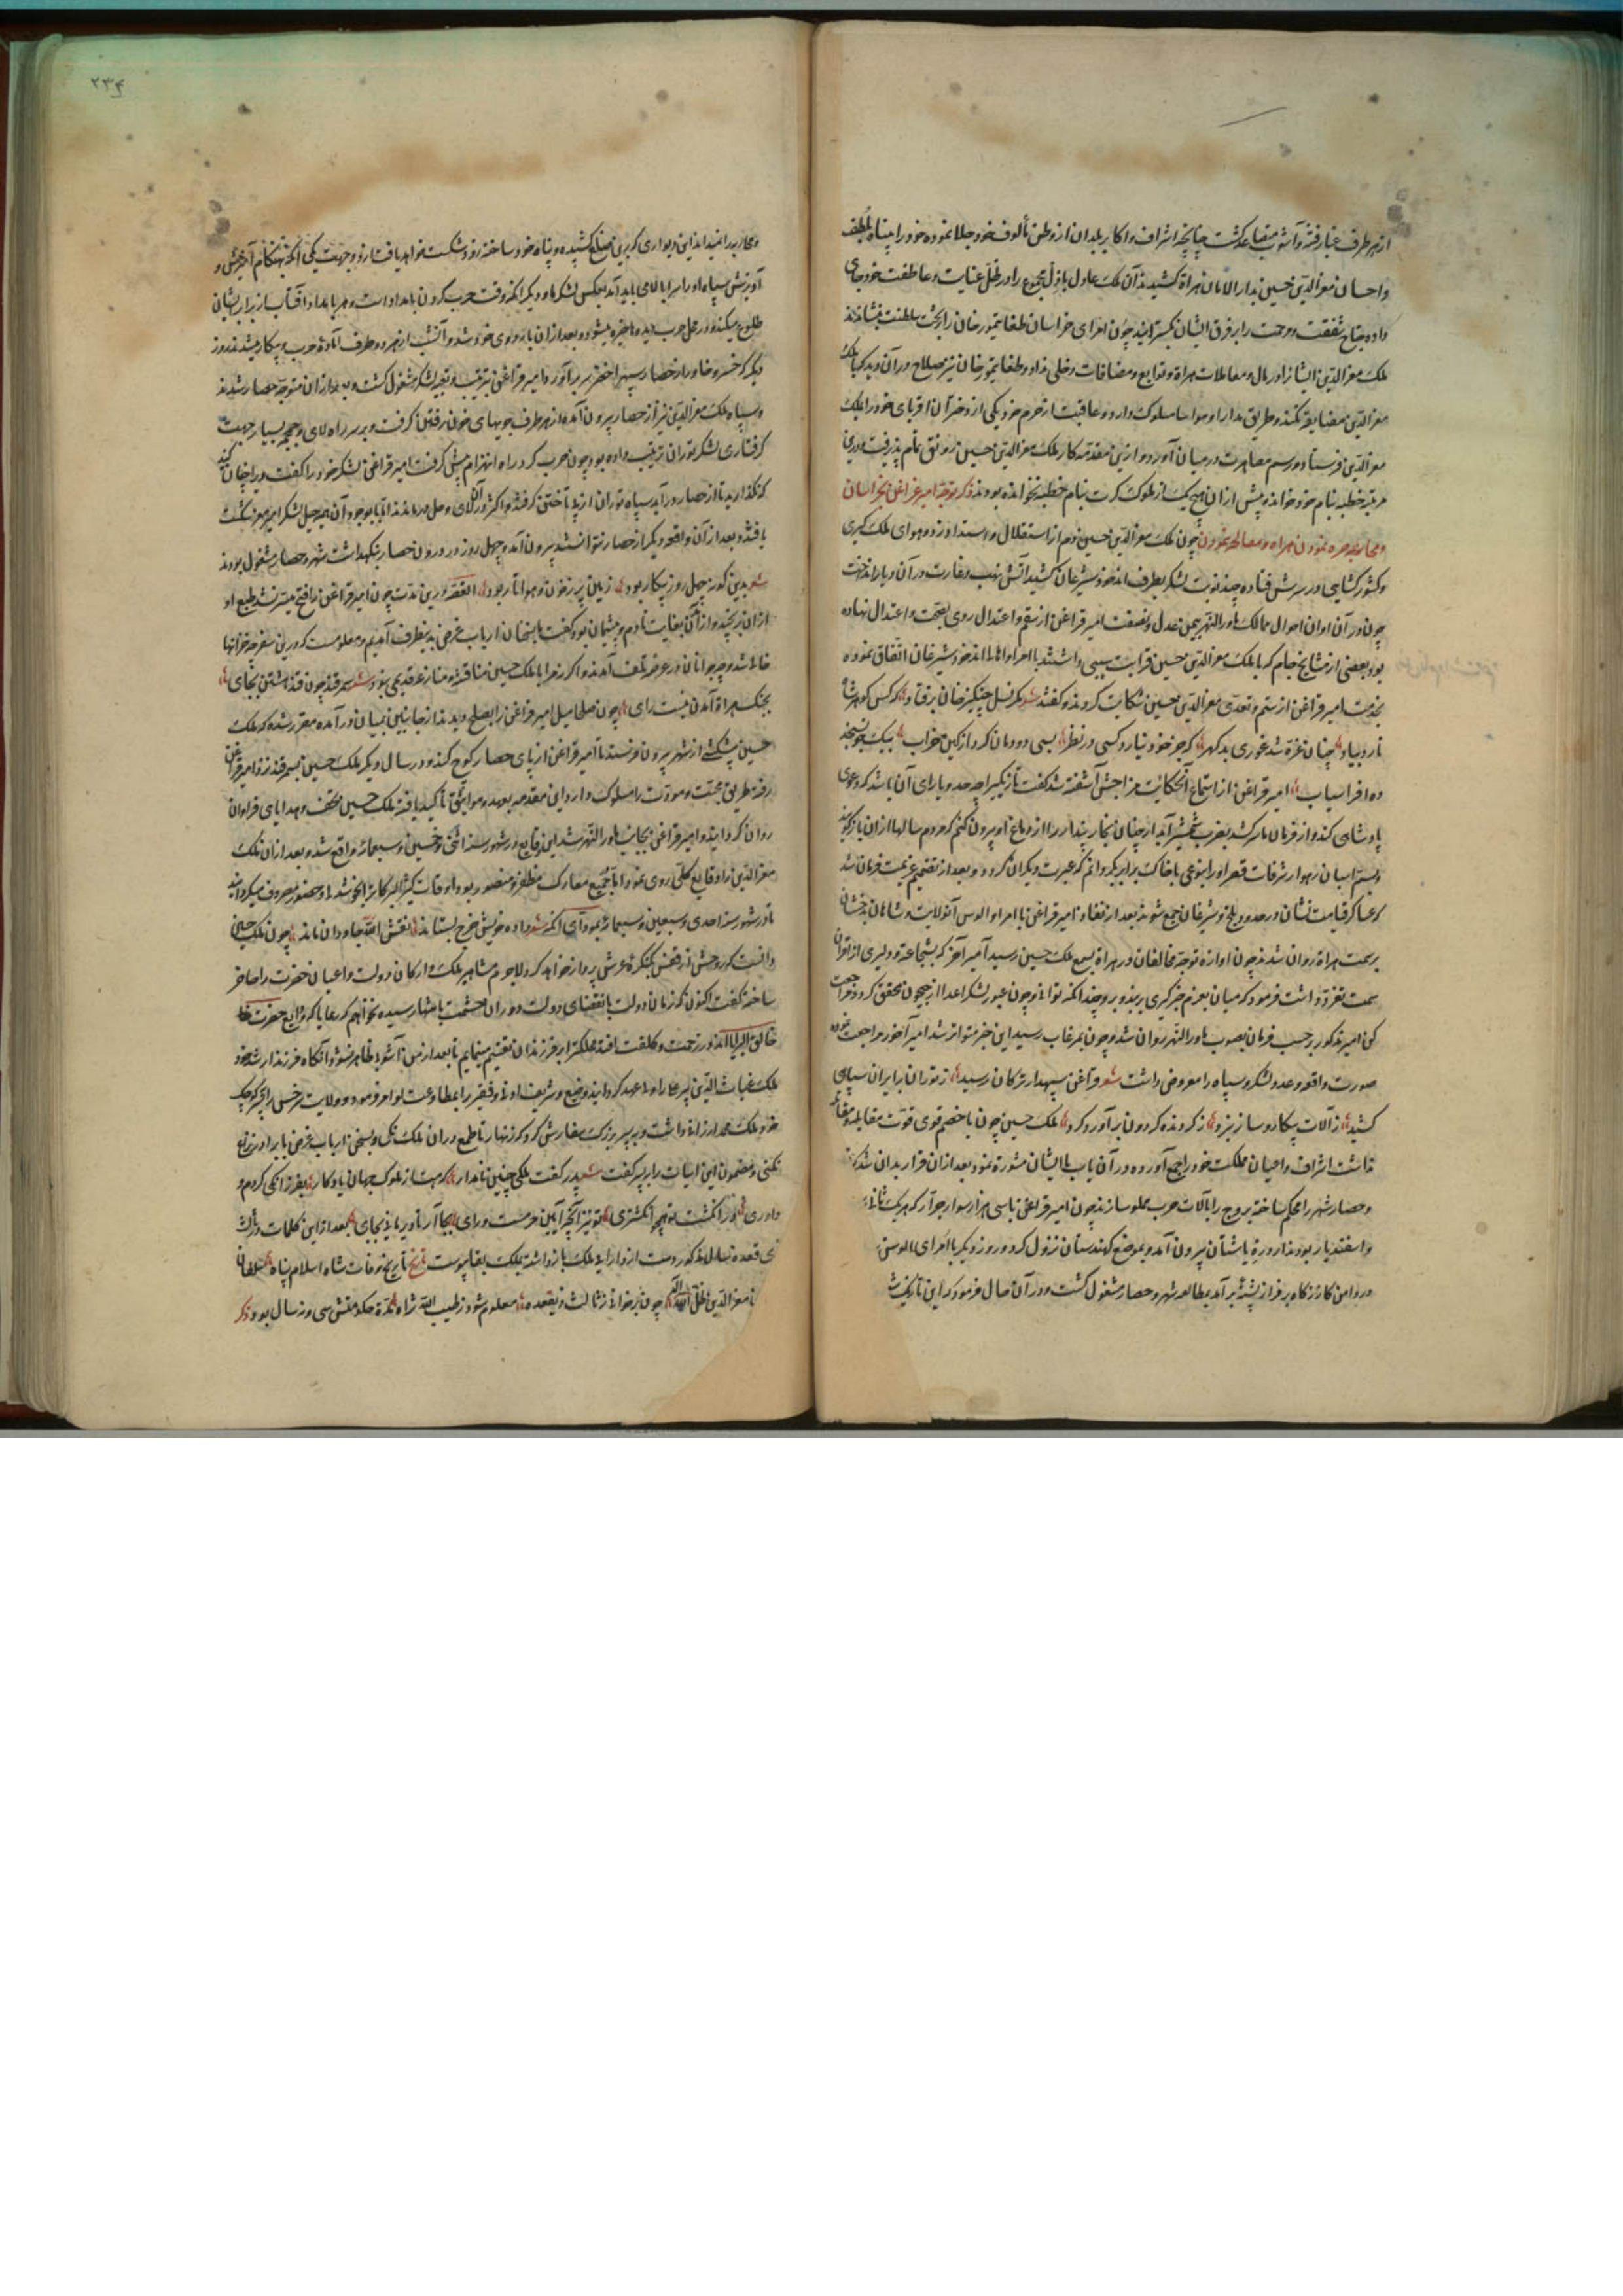 از هر طرف غبار فتنه و آشوب متصاعد گشت چنانچه اشراف و اکابر بلدان از وطن مألوف خود جلا نموده خود را پناه لطف
و احسان معز الدین حسین بدار الامان هراة کشیدند آن ملک عادل باذل مجموع را در ظل عنایت و عاطفت خود جای
داده جناح شفقت و رحمت را بر فرق ایشان بگسترانید چون امرای خراسان طغایتمور خان را بتخت سلطنت بنشاندند
ملک معز الدین انشا در مال و معاملات هراة و توابع و مضافات دخلی نداد و طغایتمور خان نیز صلاح در آن دید که با ملک
معز الدین مضایقه نکند و طریق مدارا و مواسا مسلوک دارد و عاقبت از حرم خود یکی از دختران اقربای خود را بملک
معز الدین فرستاد و رسم مصاهرت در میان آورد و ازین مقدمه کار ملک معز الدین حسین رونق تمام پذیرفت و درین
مرتبه خطبه بنام خود خواند و پیش ازان هیچ یک از ملوک کرت بنام خطبه نخوانده بودند ذکر توجه امیر قزاغن بخراسان
و محاربه و محاصره نمودن هراه و مصالحه نمودن چون ملک معز الدین حسین دم از استقلال و استبداد زد و هوای ملک گیری
و کشورگشایی در سرش فتاده چند نوبت لشکر بطرف اندخود و شبرغان کشید آتش نهب و غارت در آن دیار انداخت
چون در آن اوان احوال ممالک ماوراء النهر بیمن عدل و نصفت امیر قزاغن از سقم و اعتدال روی بصحت و اعتدال نهاده
بود بعضی از مشایخ جام که با ملک معز الدین حسین قرابت سببی داشتند با امرا و اهالی اندخود و شبرغان اتفاق نموده
بخدمت امیر قزاغن از ستم و تعدی معز الدین حسین شکایت کردند و گفتند شعر مگر نسل چنگیز خان برفتاد که کس گوهر شاه
نارد بیاد چنان غره شد غوری بدگهر که جز خود نیارد کسی در نظر بسی دودمان کرد از کین خراب بیک جو نسنجد
ده افراسیاب امیر قزاغن از استماع آنحکایت مزاجش آشفته شد گفت تازیکیرا چه حد و یارای آن باشد که دعوی
پادشاهی کند و از فرمان ما سر کشد بضرب شمشیر آبدار چنان بخار پندار را از دماغ او بیرون کنم که مردم سالها ازان بازگویند
و بسم اسبان رهوار شرفات قصر او را بنوعی با خاک برابر گردانم که عبرت دیگران گردد و بعد از تصمیم عزیمت فرمان شد
که عساکر قیامت نشان در حدود بلخ و شبرغان جمع شوند بعد از انعقاد امیر قزاغن با امرا و الوس آنولایت و شاهان بدخشان
بر سمت هراة روان شدند چون اوازه توجه مخالفان در هراة بسمع ملک حسین رسید امیر آخر که بشجاعت و دلیری از اقران
سمت تفرد داشت فرمود که میان بعزم خبرگیری بربندد و چنداکه تواند چون عبور لشکر اعدا از جیحون محقق گردد مراجعت
کن امیر مذکور بر حسب فرمان بصوب ماوراء النهر روان شد و چون بمرغاب رسید این خبر متواتر شد امیر آخور مراجعت نموده
صورت واقعه و عدد لشکر و سپاه را معروض داشت شعر قزاغن سپهدار ترکان رسید ز توران بایران سپاهی
کشید ز آلات پیکار و ساز نبرد ز گردنده گردون برآورد گرد ملک حسین چون با خصم قوی قوت مقابله و مقاتله
نداشت اشراف و اعیان مملکت خود را جمع آورده در آن باب با ایشان مشورة نمود بعد ازان قرار بدان شد که
و حصار شهر را محکم ساخته بروج را بآلات حرب مملو سازند چون امیر قزاغن با سی هزار سوار جرار که هر یک
و اسفندیار بودند از درۀ پاشتان بیرون آمد و بموضع کهندستان نزول کرد و روز دیگر با امرای الوس
در دامن کازرگاه بر فراز پشته برآمد بمطالعه شهر و حصار مشغول گشت و در آن حال فرمود که این تازیک
۲۳۴
و محاربه را نمیداند این دیواری که برین ضلع کشیده و پناه خود ساخته زود شکست خواهد یافت از دو جهت یکی آنکه بهنگام آمیزش و
آویزش سپاه او را سر ابالا می باید آمد بعکس لشکر ما و دیگر آنکه وقت حرب کردن بامداد است و هر بامداد آفتاب از برابر ایشان
طلوع میکند و در محل حرب دیده ها خیره میشود و بعد ازان باردوی خود شد و آنشب از هر دو طرف آمادۀ حرب و پیکار میشدند روز
دیگر که خسرو خاور از حصار سپهر اخضر سر برآورد امیر قزاغن بترتیب و تعبیه لشکر مشغول گشت و بعد ازان متوجه حصار شدند
و سپاه ملک معز الدین نیز از حصار بیرون آمده از هر طرف جویهای خون رفتن گرفت و بر سر راه لای و جمجمه بسیار جهت
گرفتاری لشکر توران ترتیب داده بود چون حرب کرد راه انهزام پیش گرفت امیر قزاغن لشکر خود را گفت ویرا چنان
که نگذارید تا از حصار درآید سپاه توران از پی تاختن گرفتند و اکثر در آن لای و حل درماندند اما با وجود آن هم خیل لشکر امیر معز شکست
یافتند و بعد از آن واقعه دیگر از حصار نتوانستند بیرون آمد و چهل روز در درون حصار بنگهداشت شهر و حصار مشغول بودند
شعر بدین گونه چهل روز پیکار بود زمین پر ز خون و هوا تار بود القصه درین مدت چون امیر قزاغن را فتح میسر نشد طبع او
ازان برنجید و از آن بغایت نادم و پشیمان بود گفت ما بسخنان ارباب غرض بدینطرف آمدیم و معلومست که درین سفر چه خزانها
خالی شد و چه جوانان در عرضه تلف آمدند و اگر نه مرا با ملک حسین مناقشه و منازعه قدیمی نبود شعر سمرقند چون قند هشتن بجای
بجنگ هراة آمدن نیست رای چون صلحا میل امیر قزاغن را بصلح دیدند از جانبین بمیان در آمده مقرر شد که ملک
حسین پیشکشی از شهر بیرون فرستد تا امیر قزاغن از پای حصار کوچ کند و در سال دیگر ملک حسین بسمرقند نزد امیر قزاغن
رفته طریق محبت و مودت را مسلوک دارد و این مقدمه بعهد و مواثیق تأکید یافته ملک حسین تحف و هدایای فراوان
روان گردانید و امیر قزاغن بجانب ماوراء النهر شد این وقایع در شهور سنه اثنی و خمسین و سبعمائه واقع شد و بعد ازان ملک
معز الدین را وقایع کلی روی نمود اما در جمیع معارک مظفر و منصور بود و اوقات کثیر البرکات را بخوشدلی و حضور مصروف میگردانید
تا در شهور سنه احدی و سبعین و سبعمائه بموادی آنکه شعر داده خویش چرخ بستاند نقش الله جاودان ماند چون ملک حسین
دانست که روحش از قفس بکنگرۀ عرش پرواز خواهد کرد لاجرم مشاهیر ملک و ارکان دولت و اعیان حضرت را حاضر
ساخته گفت اکنون که زمان دولت بانقضای دولت و دوران حشمت بانتها رسیده نخواهم که رعایا که ودایع حضرت
خالق البرایا اند در زحمت و کلفت افتند مملکت را بر فرزندان تقسیم مینمایم تا بعد از من آشوب ظاهر نشود آنگاه فرزند ارشد خود
ملک غیاث الدین پیر علی را ولی عهد گردانید وضیع و شریف و غنی و فقیر را بمطاوعت او امر فرمود و ولایت سرخس را بپسر کوچک
خود ملک محمد ارزانی داشت و به پسر بزرگ سفارش کرد که زنهار تا طمع در آن ملک نکنی و بسخن ارباب غرض با برادر نزاع
نکنی و مضمون این ابیات را بر پسر گفت شعر پدر گفت ملکی چنین نامدار که هست از ملوک جهان یادگار بفرزانگی کردم و
داوری در انگشت تو همچو انگشتری تو نیز آنچه آیین خرمست و رای بجا آر تا دیر مانی بجای بعد از این کلمات در ثالث
ذی قعده سال مذکور دست از دارایی ملک بازداشته بملک بقا پیوست تاریخ تاریخ وفات شاه اسلام پناه سلطان
معز الدین ظل اله چون برخوانی ز ثالث ذیقعده معلوم شود ز طیب الله ثراه مدة حکومتش سی و نه سال بود ذکر